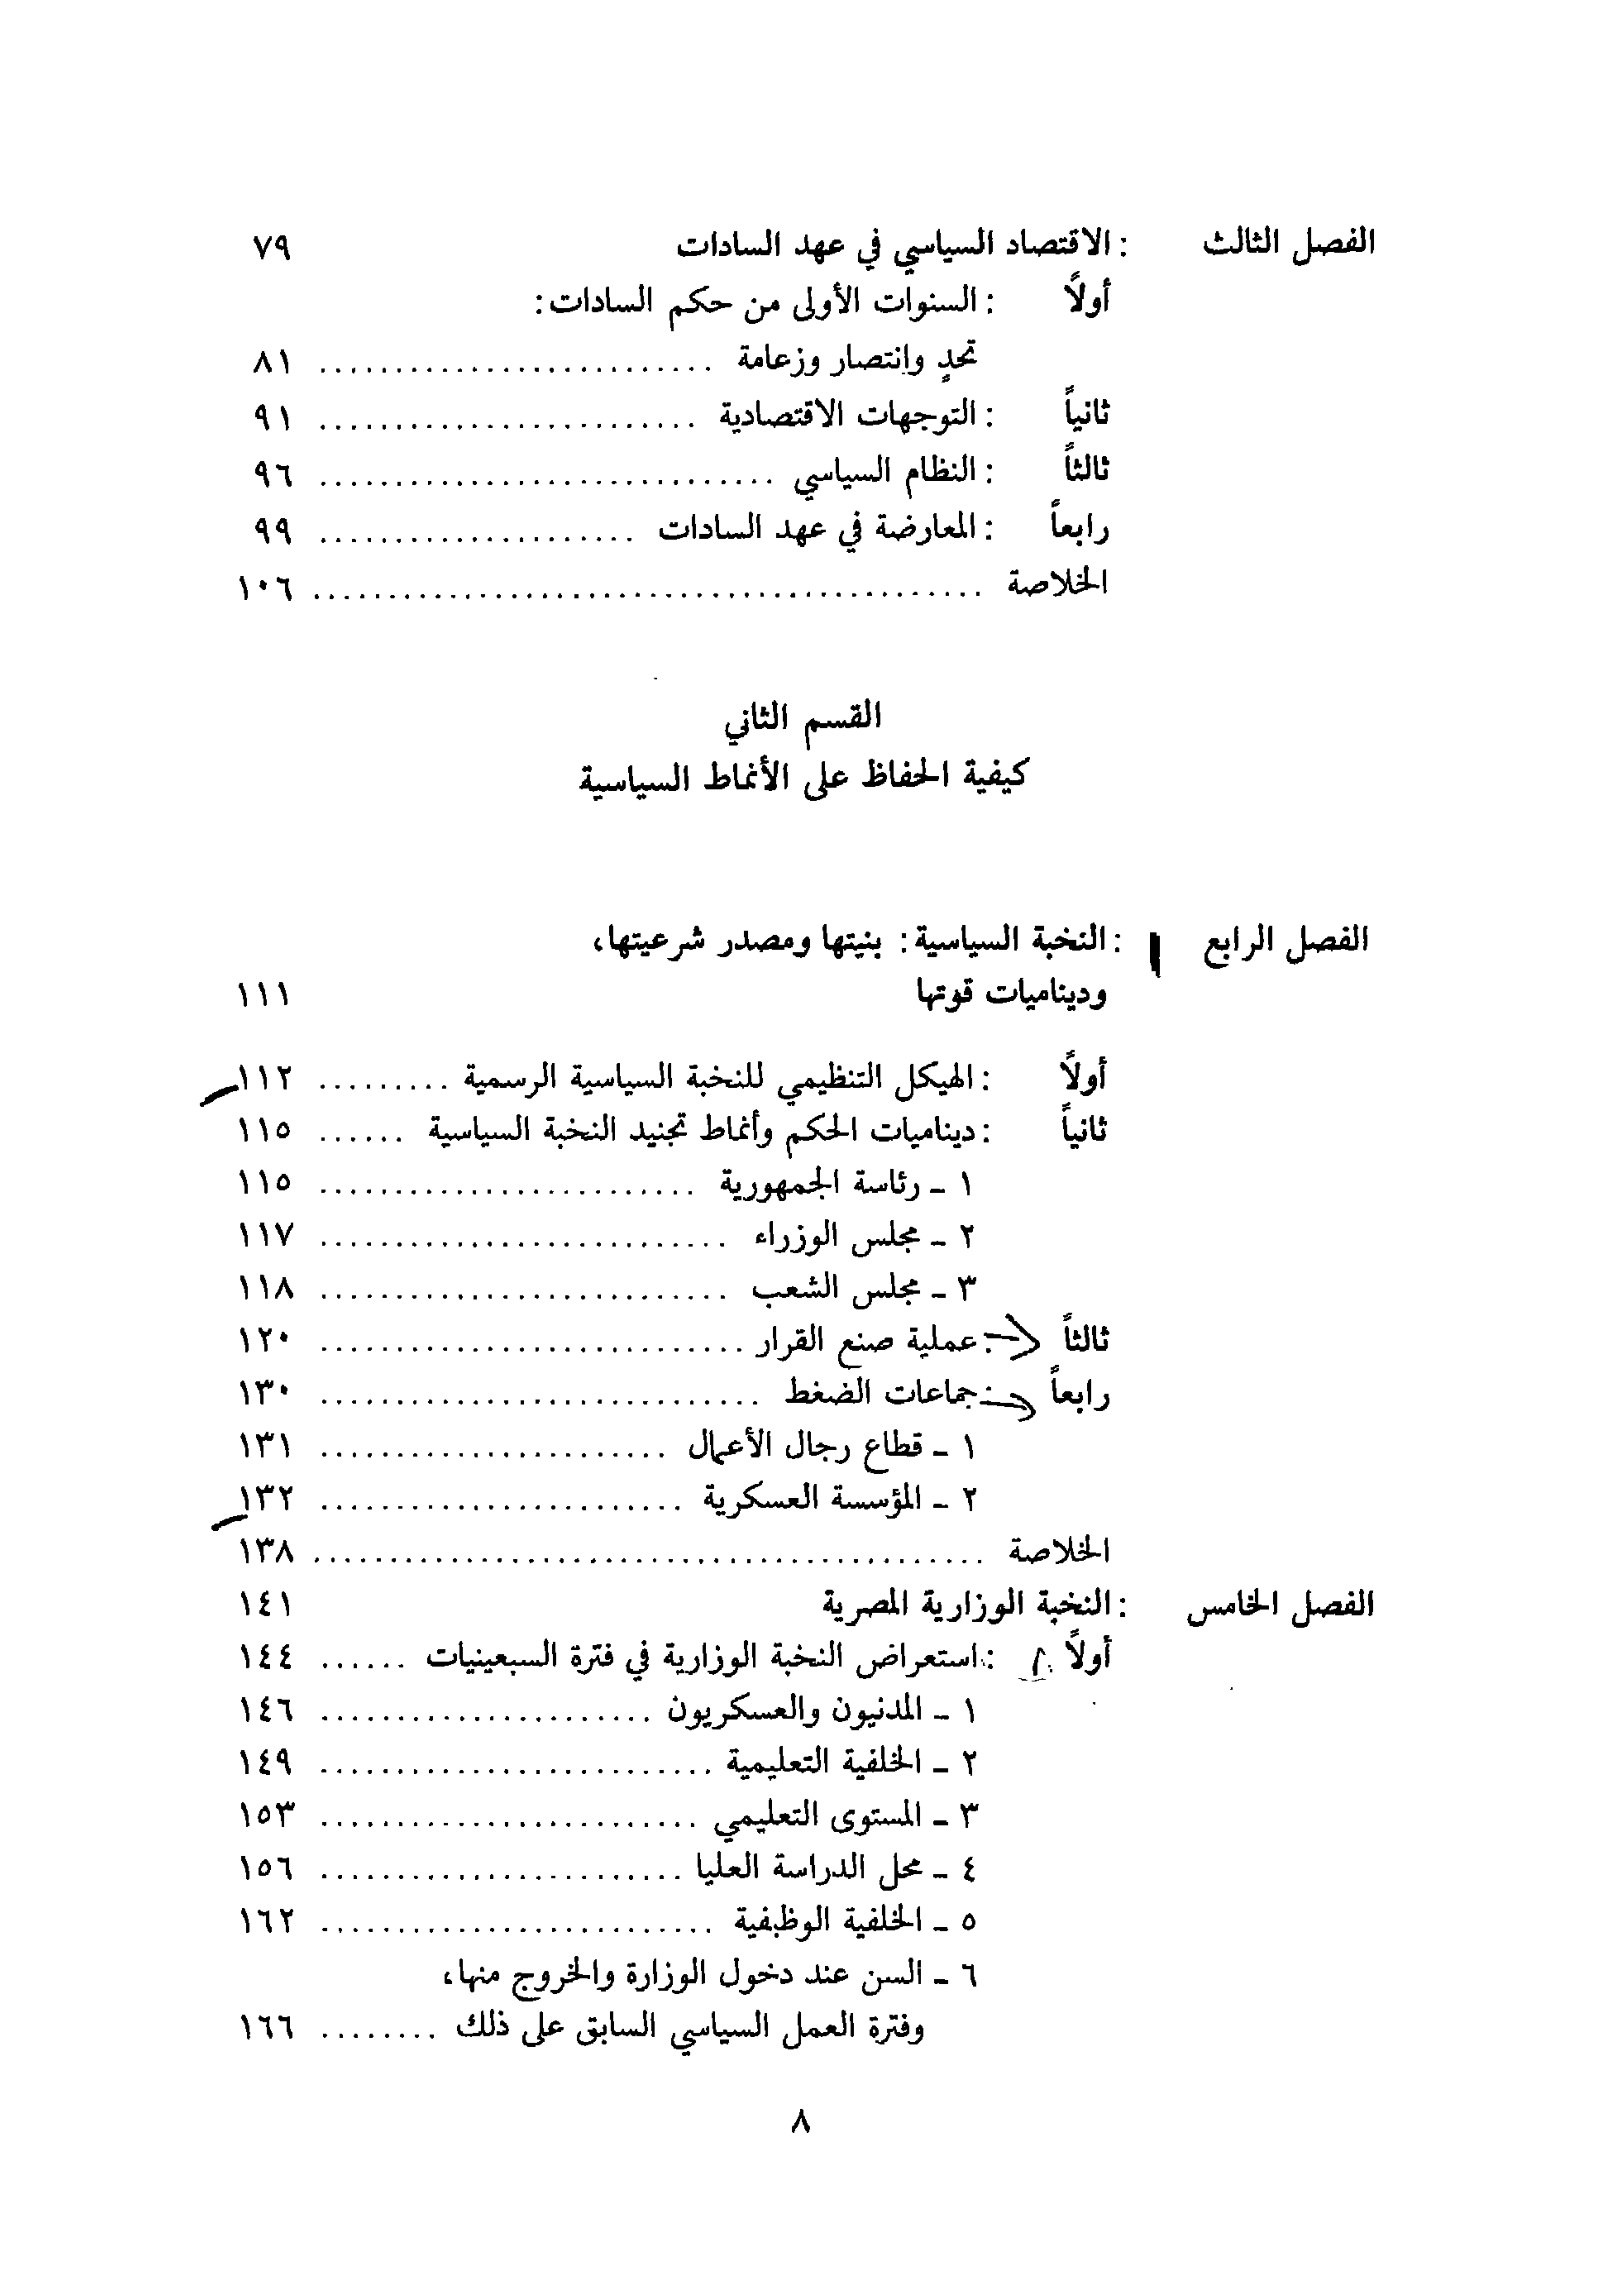 الفصل الثالث : الاقتصاد السياسي في عهد السادات ٧٩
أولاً : السنوات الأولى من حكم السادات:
تحدٍ وانتصار وزعامة .......................... ٨١
ثانياً : التوجهات الاقتصادية ......................... ٩١
ثالثاً : النظام السياسي .............................. ٩٦
رابعاً : المعارضة في عهد السادات ..................... ٩٩
الخلاصة ............................................ ١٠٦
القسم الثاني
كيفية الحفاظ على الأنماط السياسية
الفصل الرابع : النخبة السياسية: بنيتها ومصدر شرعيتها،
وديناميات قوتها ١١١
أولاً : الهيكل التنظيمي للنخبة السياسية الرسمية ......... ١١٢
ثانياً : ديناميات الحكم وأنماط تجنيد النخبة السياسية ...... ١١٥
١ - رئاسة الجمهورية ......................... ١١٥
٢ - مجلس الوزراء ........................... ١١٧
٣ - مجلس الشعب ........................... ١١٨
ثالثاً : عملية صنع القرار ............................ ١٢٠
رابعاً : جماعات الضغط ............................. ١٣٠
١ - قطاع رجال الأعمال ....................... ١٣١
٢ - المؤسسة العسكرية ........................ ١٣٢
الخلاصة ............................................ ١٣٨
الفصل الخامس : النخبة الوزارية المصرية ١٤١
أولاً : استعراض النخبة الوزارية في فترة السبعينيات ...... ١٤٤
١ - المدنيون والعسكريون ...................... ١٤٦
٢ - الخلفية التعليمية .......................... ١٤٩
٣ - المستوى التعليمي ......................... ١٥٣
٤ - محل الدراسة العليا ........................ ١٥٦
٥ - الخلفية الوظيفية .......................... ١٦٢
٦ - السن عند دخول الوزارة والخروج منها،
وفترة العمل السياسي السابق على ذلك ........ ١٦٦
٨